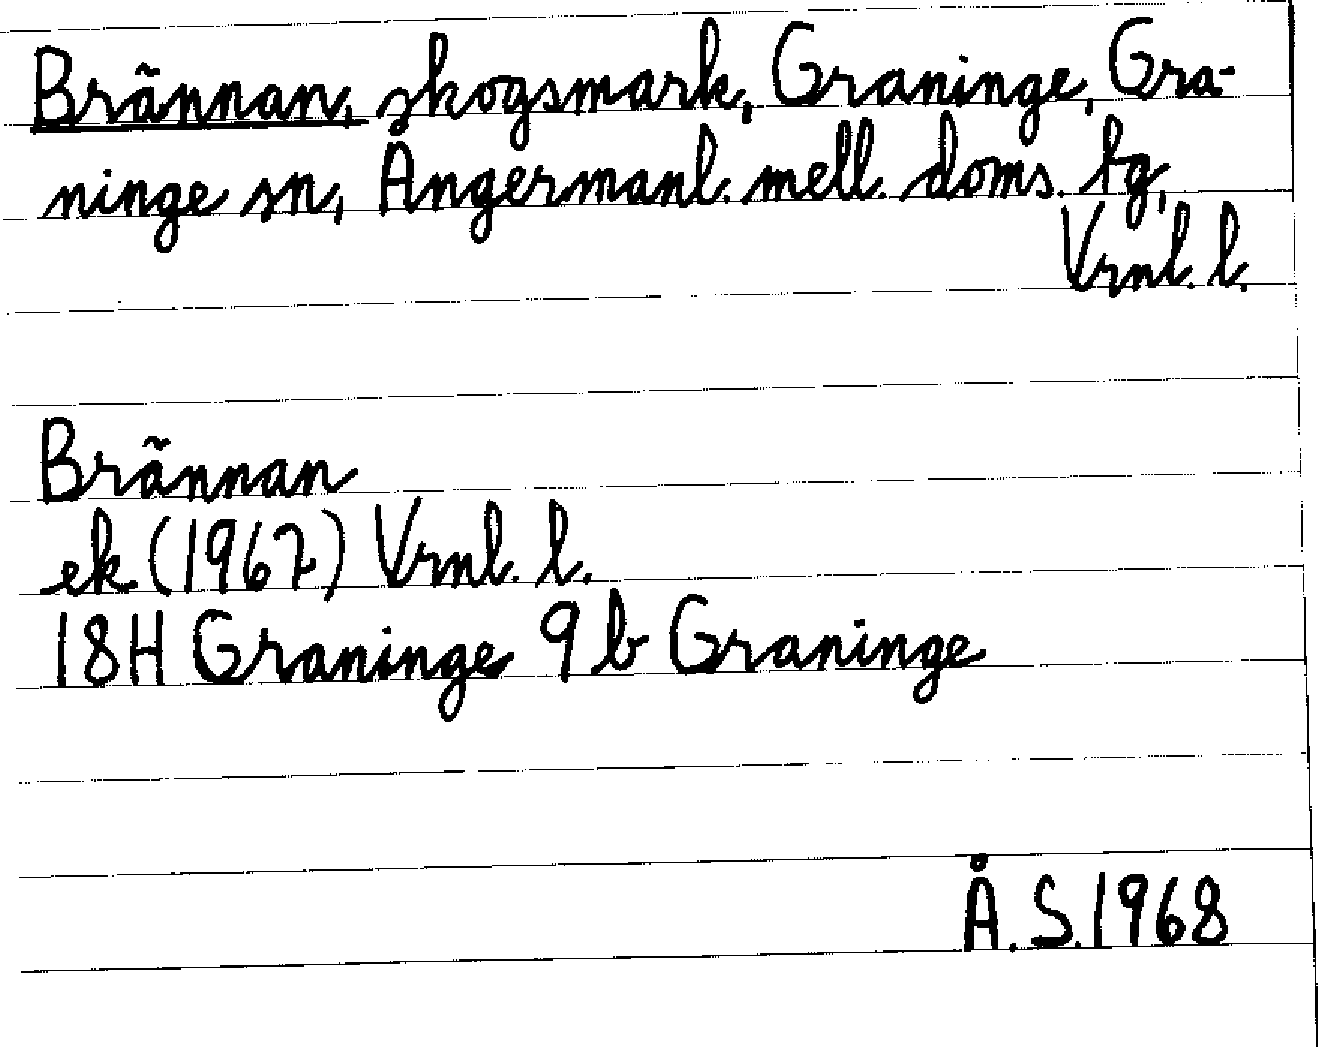 Brännan, skogsmark, Graninge, Gra-
ninge sn, Ångermanl. mell. doms. tg,
Vrnl. l.
Brännan
ek (1967) Vrnl. l.
18H Graninge 9 b Graninge
Å. S. 1968